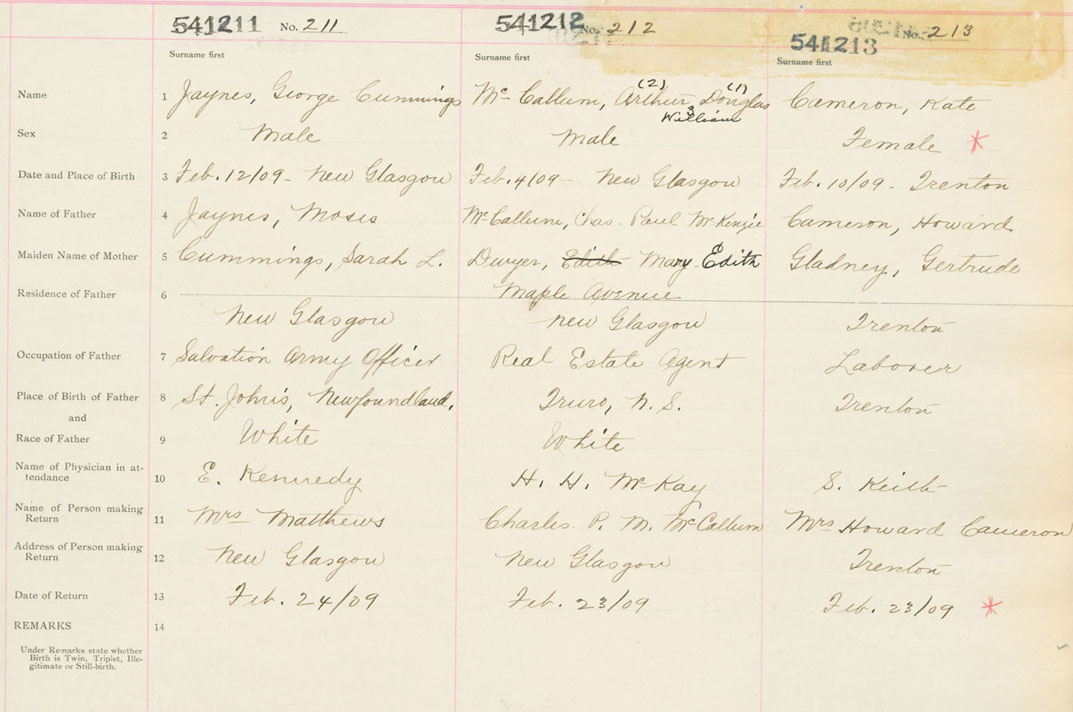 541211 No. 211 541212 No. 212 541213 No. 213
Surname first Surname first Surname first
Name 1 Jaynes, George Cummings McCallum, Arthur Douglas Cameron, Kate
(2) (1)
3 William
Sex 2 Male Male Female *
Date and Place of Birth 3 Feb. 12/09 - New Glasgow Feb. 4/09 - New Glasgow Feb. 10/09 - Trenton
Name of Father 4 Jaynes, Moses McCallum, Chas. Paul McKenzie Cameron, Howard
Maiden Name of Mother 5 Cummings, Sarah L. Dwyer, Edith Mary Edith Gladney, Gertrude
Residence of Father 6 Maple Avenue
New Glasgow New Glasgow Trenton
Occupation of Father 7 Salvation Army Officer Real Estate Agent Laborer
Place of Birth of Father 8 St. John's, Newfoundland, Truro, N. S. Trenton
and
Race of Father 9 White White
Name of Physician in at-
tendance 10 E. Kennedy H. H. McKay S. Keith
Name of Person making
Return 11 Mrs Matthews Charles P. M. McCallum Mrs Howard Cameron
Address of Person making
Return 12 New Glasgow New Glasgow Trenton
Date of Return 13 Feb. 24/09 Feb. 23/09 Feb. 23/09 *
REMARKS 14
Under Remarks state whether
Birth is Twin, Triplet, Ille-
gitimate or Still-birth.